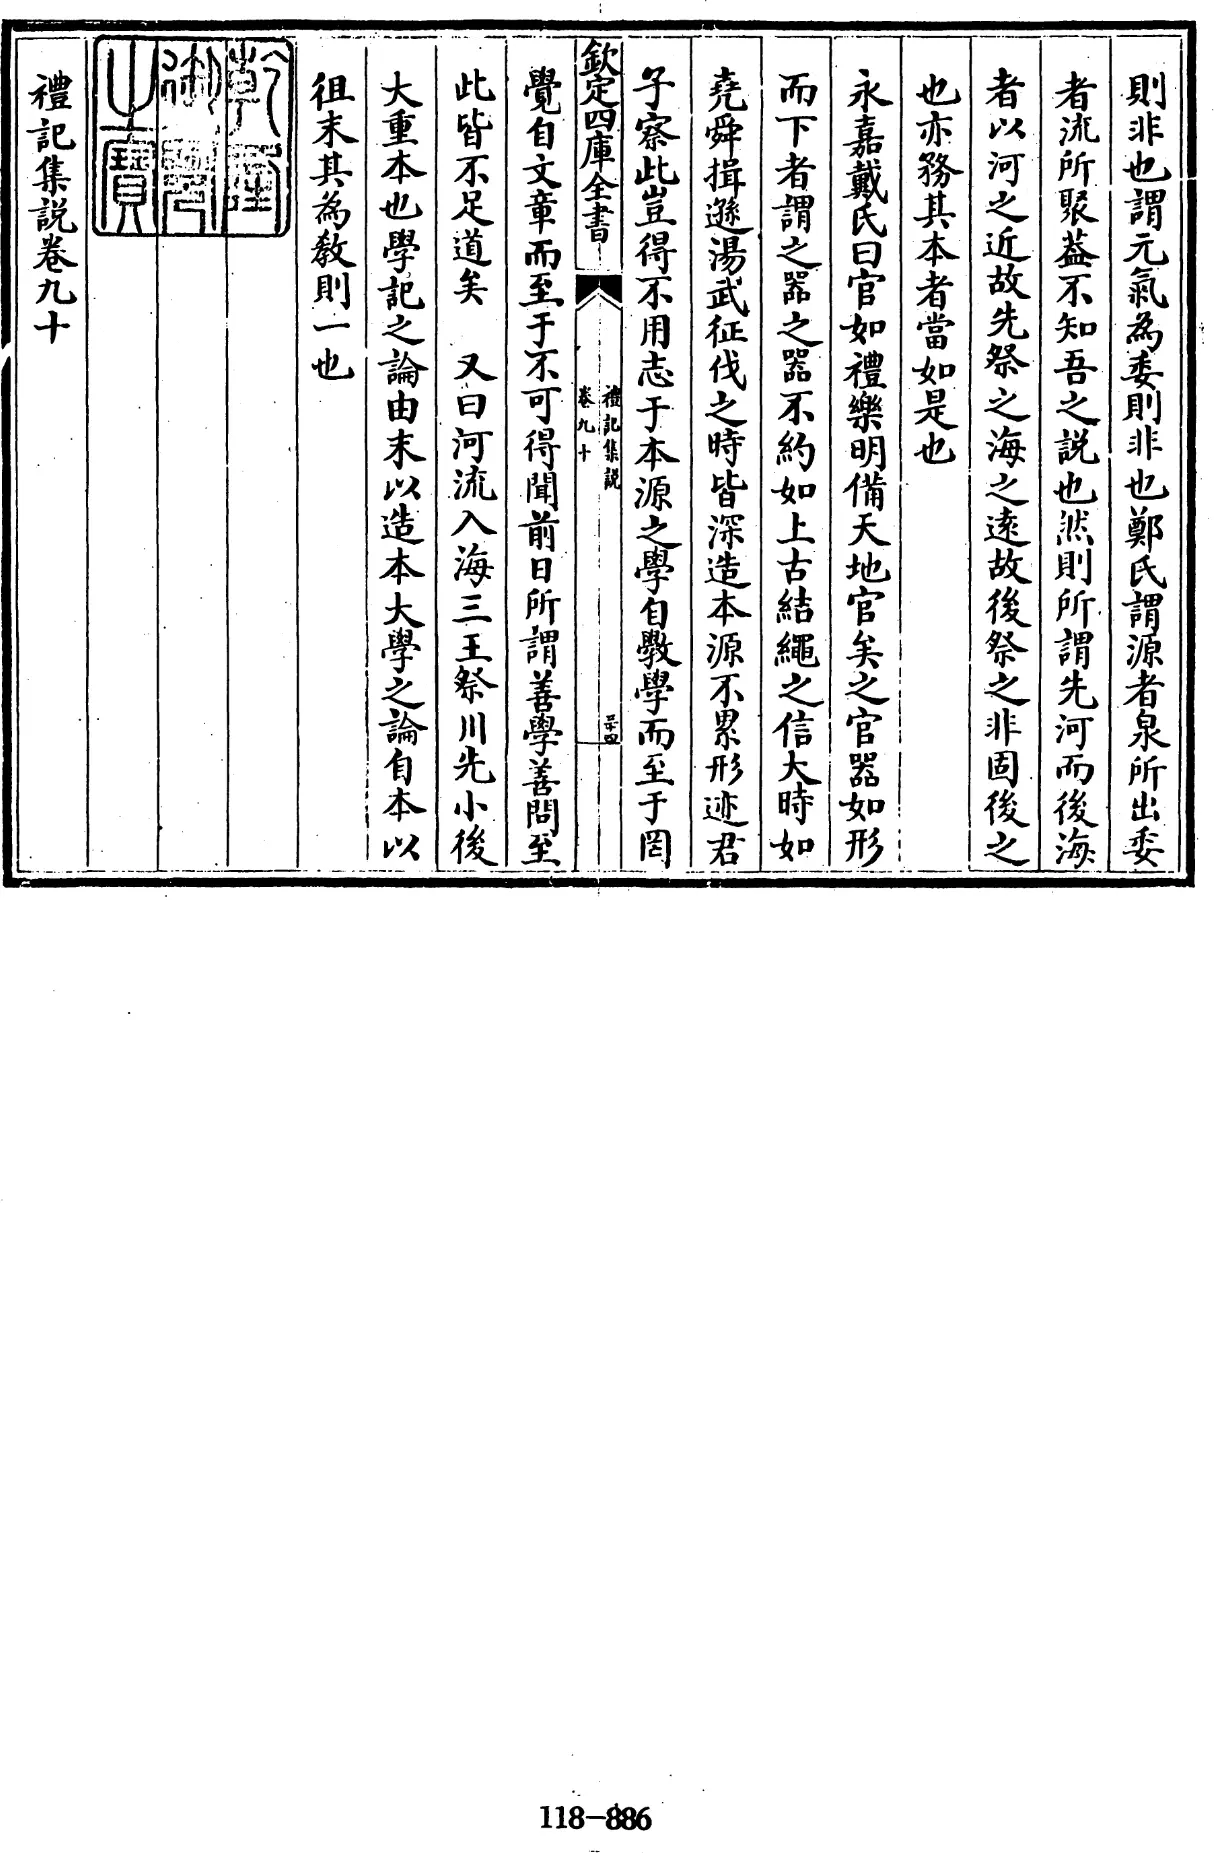 則非也謂元氣為委則非也鄭氏謂源者泉所出委
者流所聚葢不知吾之説也然則所謂先河而後海
者以河之近故先祭之海之逺故後祭之非固後之
也亦務其本者當如是也
永嘉戴氏曰官如禮樂明備天地官矣之官器如形
而下者謂之器之器不約如上古結繩之信大時如
堯舜揖遜湯武征伐之時皆深造本源不累形迹君
子察此豈得不用志于本源之學自斆學而至于罔
欽定四庫全書
禮記集説
卷九十
三十四
覺自文章而至于不可得聞前日所謂善學善問至
此皆不足道矣　又曰河流入海三王祭川先小後
大重本也學記之論由末以造本大學之論自本以
徂末其為教則一也
乾隆御覽之寶
禮記集説卷九十
118-886